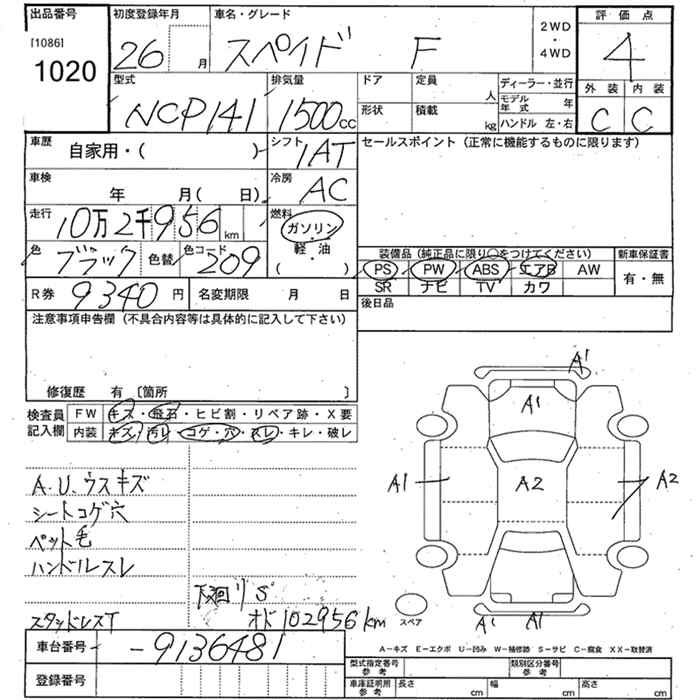 出品番号 初度登録年月 車名・グレード 2WD ・ 4WD 評価点
[1086] 1020 26 月 スペイド F 4
型式 排気量 ドア 定員 人 ディーラー・並行 外装 内装
NCP141 1500cc 形状 積載 kg モデル年式 年 C C
ハンドル 左・右
車歴 自家用・( ) シフト 1AT セールスポイント (正常に機能するものに限ります)
車検 年 月( 日) 冷房 AC
走行 10万2千956km 燃料 ガソリン・軽・油 ( )
色 ブラック 色替 色コード 209
装備品 (純正品に限り○をつけてください) 新車保証書
PS PW ABS エアB AW 有・無
SR ナビ TV カワ
R券 9340円 名変期限 月 日 後日品
注意事項申告欄 (不具合内容等は具体的に記入して下さい)
修復歴 有 〔箇所 〕
検査員 FW キズ・飛石・ヒビ割・リペア跡・X要
記入欄 内装 キズ・汚レ・コゲ・穴・スレ・キレ・破レ
A.U.ウスキズ
シートコゲ穴
ペット毛
ハンドルスレ
下廻リS
スタッドレスT オド102956km
A1
A1
A1 A2 A2
A1 A1
スペア
A-キズ E-エクボ U-凹み W-補修跡 S-サビ C-腐食 XX-取替済
車台番号 -9136481
登録番号
型式指定番号 参考 類別区分番号 参考
車庫証明用 参考 長さ cm 幅 cm 高さ cm